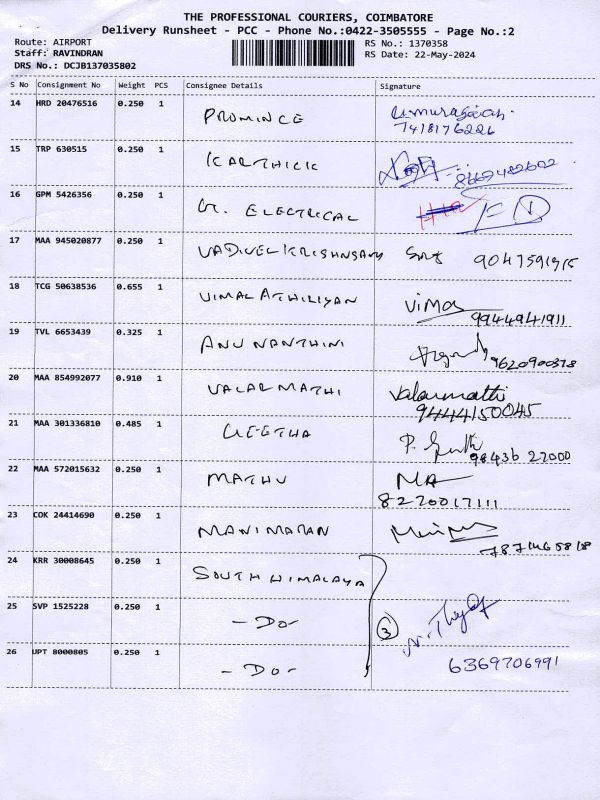 THE PROFESSIONAL COURIERS, COIMBATORE
Delivery Runsheet - PCC - Phone No.:0422-3505555 - Page No.:2
Route: AIRPORT
Staff: RAVINDRAN
DRS No.: DCJB137035802
RS No.: 1370358
RS Date: 22-May-2024
S No Consignment No Weight PCS Consignee Details Signature
14 HRD 20476516 0.250 1 PROMINCE
7418176226
15 TRP 630515 0.250 1 KARTHICK
8667482602
16 GPM 5426356 0.250 1 G. ELECTRICAL
17 MAA 945020877 0.250 1 VADIVEL KRISHNSAMY
18 TCG 50638536 0.655 1 VIMAL ATHILIYAN Vimal
9944941911
19 TVL 6653439 0.325 1 ANU NANTHINI
9620900378
20 MAA 854992077 0.910 1 VALAR MATHI Valarmathi
9444150045
21 MAA 301336810 0.485 1 GEETHA
98436 27000
22 MAA 572015632 0.250 1 MATHU MA
8270017111
23 COK 24414690 0.250 1 MANIMARAN
24 KRR 30008645 0.250 1 SOUTH HIMALAYA
25 SVP 1525228 0.250 1 - DO - 3
26 UPT 8000805 0.250 1 - DO - 6369706991